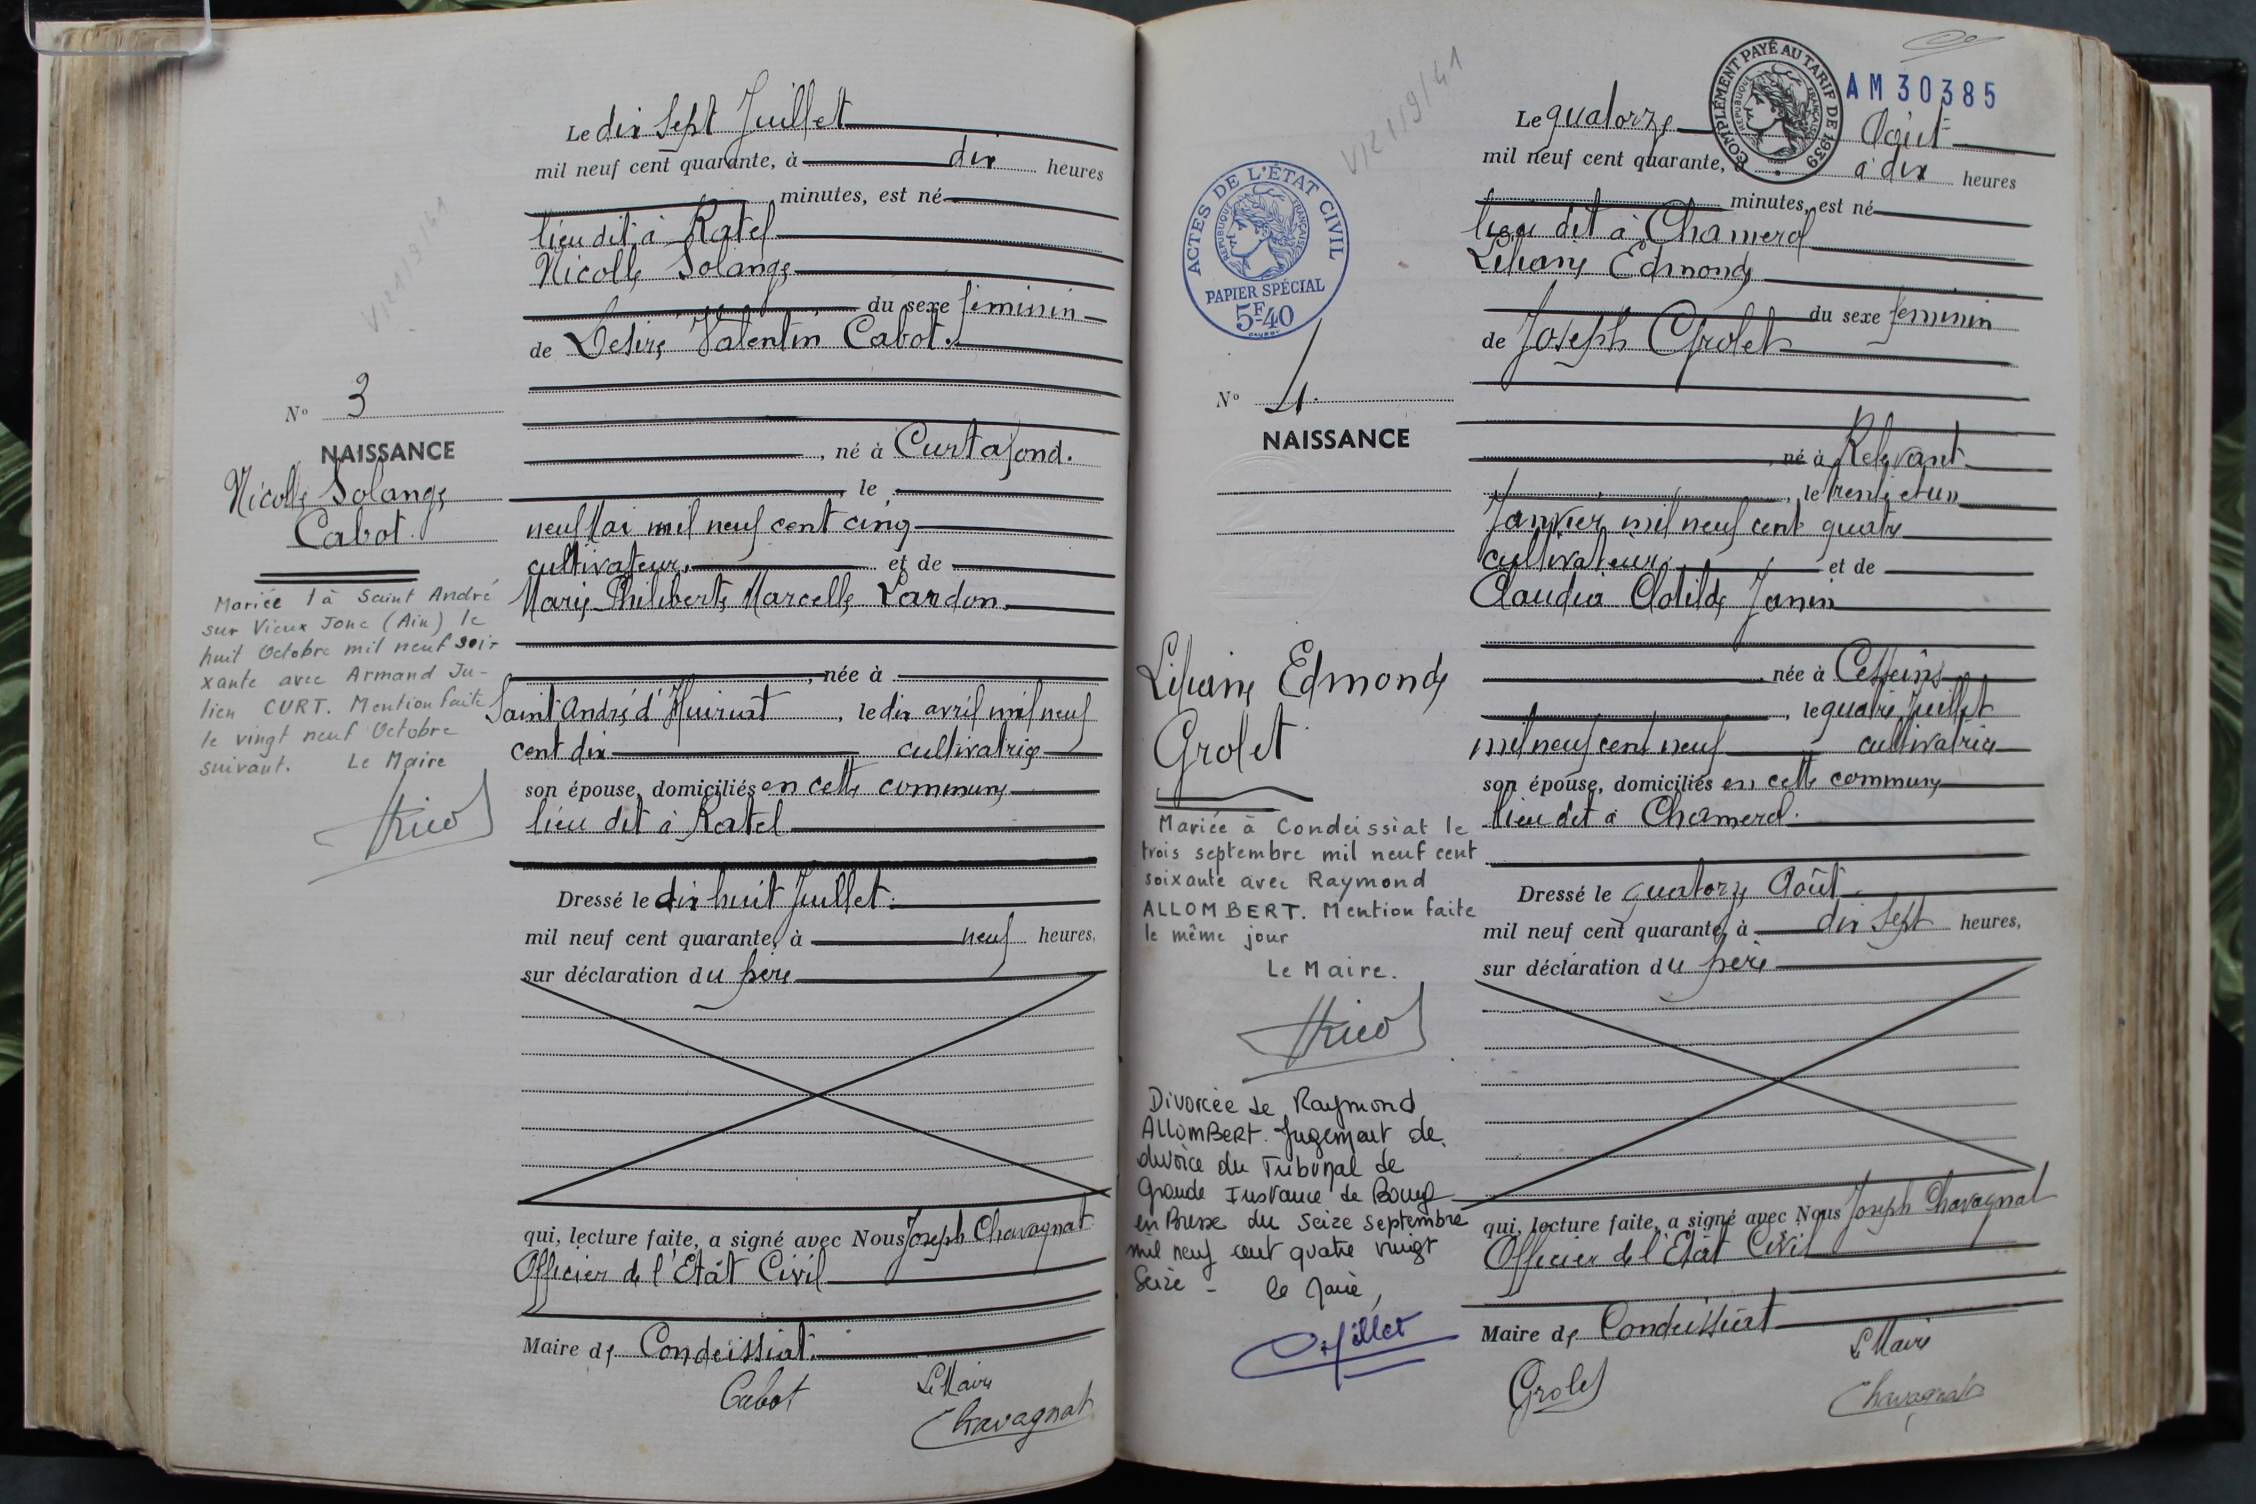 Le dix sept Juillet
mil neuf cent quarante, à dix heures
minutes, est né
lieu dit à Ratel
Nicolle Solange
du sexe féminin
de Désiré Valentin Cabot.
N° 3
NAISSANCE
Nicolle Solange
Cabot.
, né à Curtafond.
, le
neuf Mai mil neuf cent cinq
cultivateur. et de
Marie Philiberte Marcelle Landon.
, née à
Saint André d'Huiriat , le dix avril mil neuf
cent dix cultivatrice
son épouse, domiciliés en cette commune
lieu dit à Ratel
Mariée à Saint André
sur Vieux Jonc (Ain) le
huit Octobre mil neuf soi-
xante avec Armand Ju-
lien CURT. Mention faite
le vingt neuf Octobre
suivant. Le Maire
Dressé le dix huit Juillet.
mil neuf cent quarante, à neuf heures,
sur déclaration du père
qui, lecture faite, a signé avec Nous Joseph Chavagnat
Officier de l'Etat Civil
Maire de Condeissiat.
Cabot
Le Maire
Chavagnat
V 121/9/41
COMPLÉMENT PAYÉ AU TARIF DE 1939
RÉPUBLIQUE FRANÇAISE
AM 30385
Le quatorze Août
mil neuf cent quarante, à dix heures
minutes, est né
lieu dit à Chamerol
Liliane Edmonde
du sexe féminin
de Joseph Grolet
ACTES DE L'ÉTAT CIVIL
RÉPUBLIQUE FRANÇAISE
PAPIER SPÉCIAL
5F40
N° 4.
NAISSANCE
, né à Relevant
, le trente et un
Janvier mil neuf cent quatre
cultivateur et de
Claudia Clotilde Janin
, née à Cesseins
, le quatre Juillet
mil neuf cent neuf cultivatrice
son épouse, domiciliés en cette commune
lieu dit à Chamerol.
Liliane Edmonde
Grolet
Mariée à Condeissiat le
trois septembre mil neuf cent
soixante avec Raymond
ALLOMBERT. Mention faite
le même jour
Le Maire.
Divorcée de Raymond
ALLOMBERT. Jugement de
divorce du Tribunal de
Grande Instance de Bourg
en Bresse du seize septembre
mil neuf cent quatre vingt
seize - le Maire,
Dressé le quatorze Août
mil neuf cent quarante, à dix sept heures,
sur déclaration du père
qui, lecture faite, a signé avec Nous Joseph Chavagnat
Officier de l'Etat Civil
Maire de Condeissiat
Le Maire
Grolet
Chavagnat